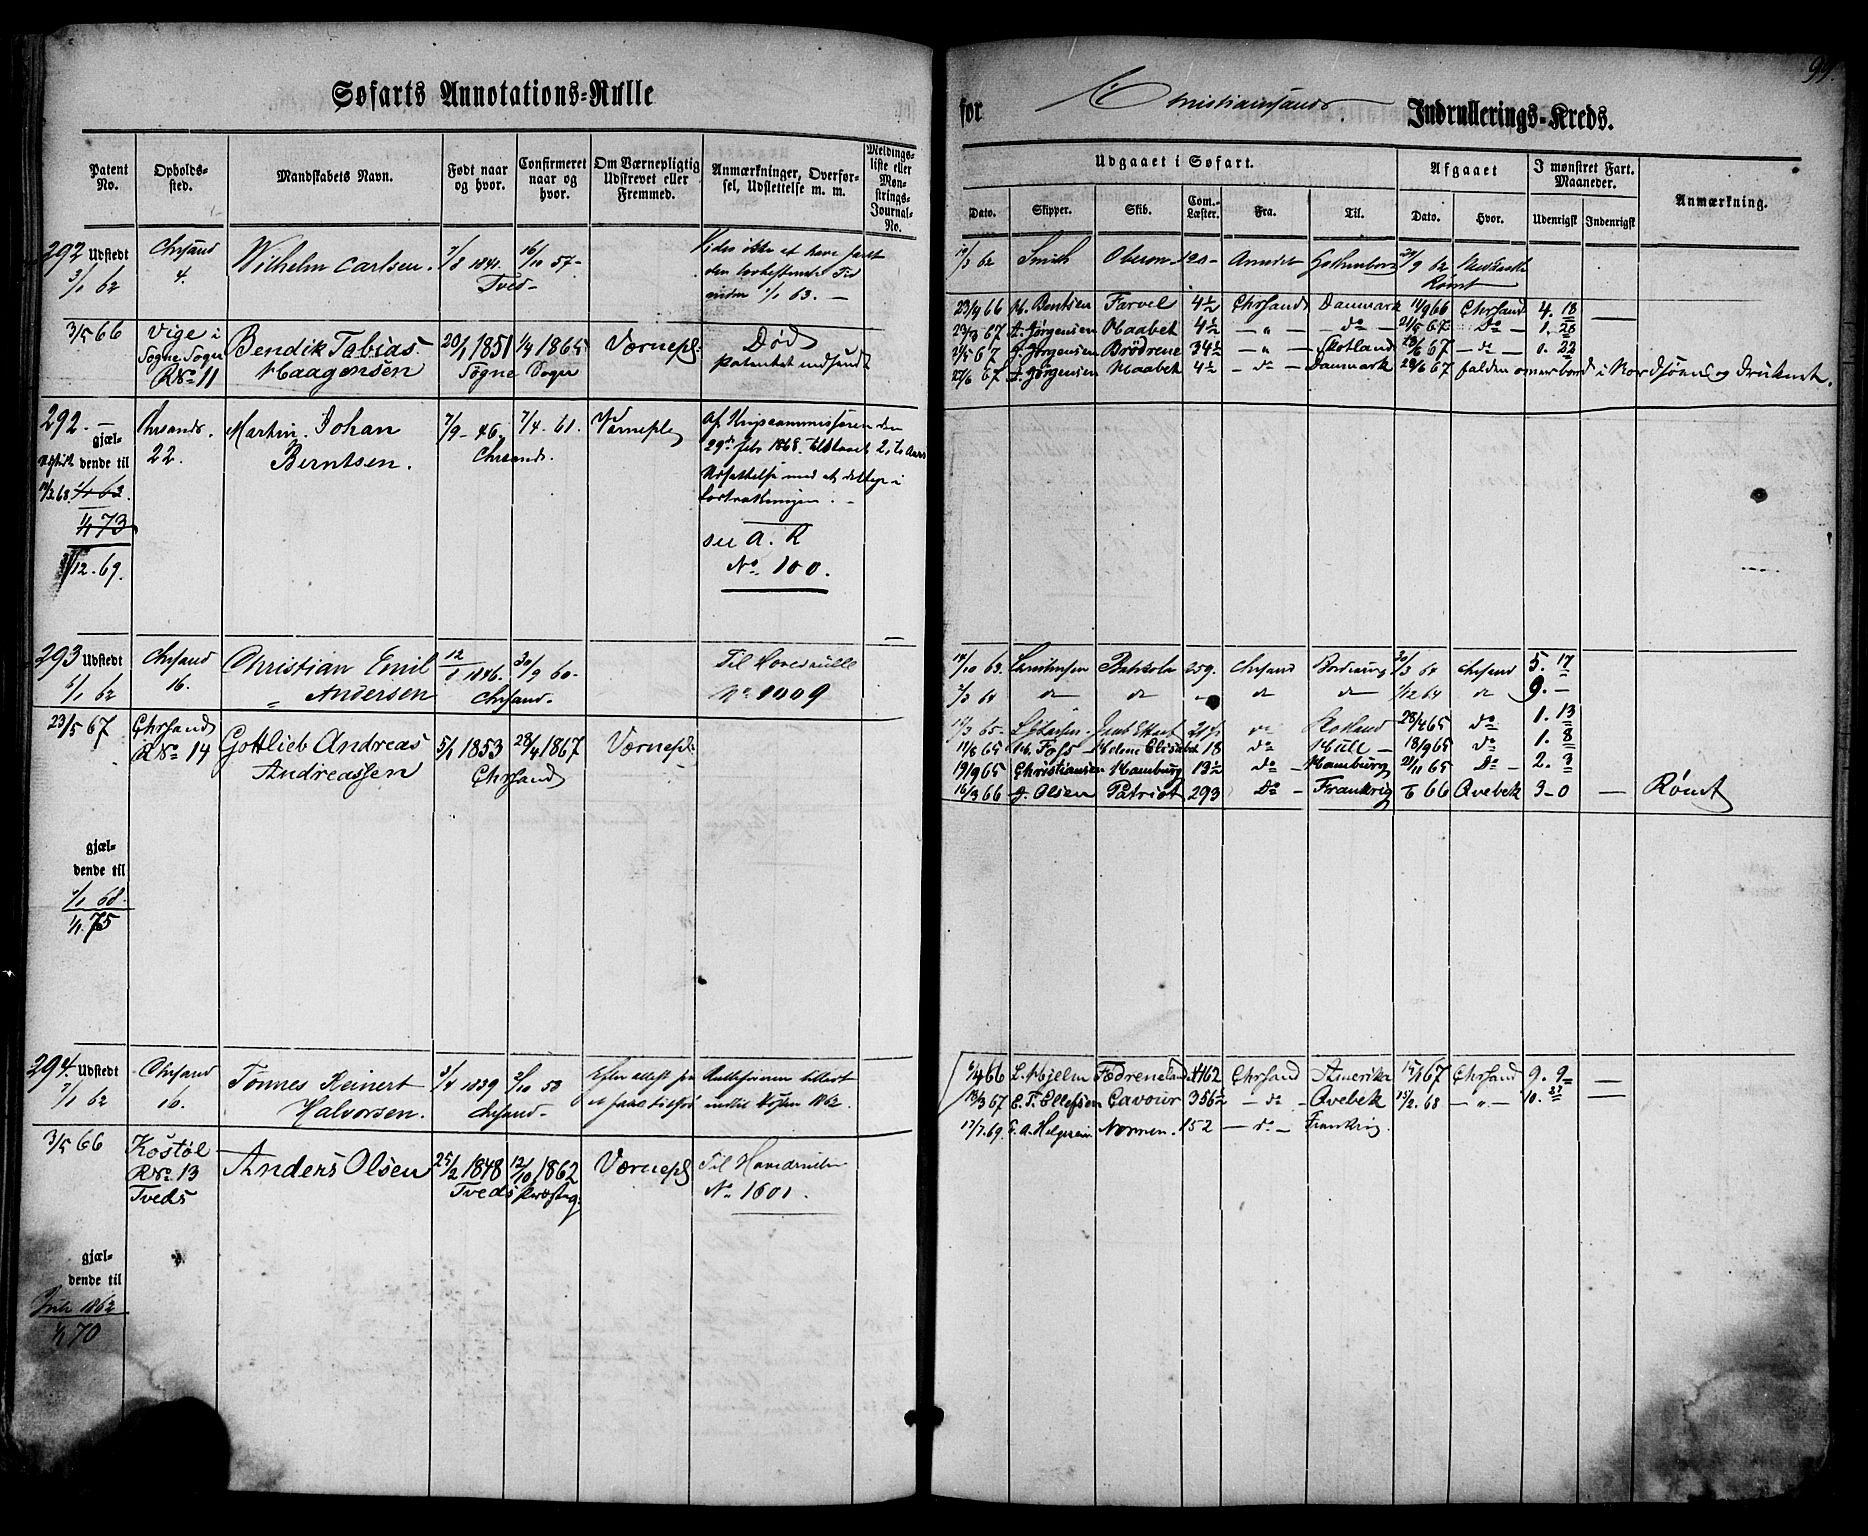 Søfarts Annotations-Rulle
Patent No. Opholds-sted. Mandskabets Navn. Født naar og hvor. Confirmeret naar og hvor. Om Værnepligtig Udstrevet eller Fremmed. Anmærkninger, Overførsel, Udslettelse m. m. Meldingsliste eller Mønstrings-Journal-No.
292 Udstedt Chrsand Wilhelm Carlsen. 7/8 1841. 16/10 57- Vides ikke at have faret
3/1 62 4. Tved- den lovbestemte Tid
inden 1/1 63. -
3/5 66 Vige i Bendik Tobias 20/1 1851 1/4 1865 Værnepl. Død
Søgne Sogn Haagensen Søgne Sogn patentet indsendt
RNo 11
292. - Chrsands. Martin Johan 7/9 - 46. 7/4 - 61. Værnepl. Af Krigscommissæren den
gjæl- 22. Berntsen. Chrsands. 29de Febr 1868. tilstaaet 2, to Aars
dende til Udsættelse med at deltage i
12/2 68 1/1 63. Lodtrækningen. -
1/1 73 see A. R
/12. 69. No 100.
293 Udstedt Chrsand Christian Emil 12/ 1846. 30/9 60- Til Hovedrulle
/1 62 16. Andersen Chrsand- No 1009
23/5 67 Chrsand Gottlieb Andreas 5/1 1853 28/4 1867 Værnepl.
RNo 14 Andreassen Chrsand
gjæl-
dende til
1/1 68.
1/1. 75
294. Udstedt Chrsand Tønnes Reinert 3/4 1839 2/10 53 Efter attest
7/1 62 16. Halvorsen. Chrsand- indtil 1862.
3/5 66 Kostøl Anders Olsen 25/2 1848 12/10 1862 Værnepl Til Hovedrullen
RNo 13 Tveds Præsteg. No 1601.
Tveds
gjæl-
dende til
1862
1/1 70
94.
for Christianssands Indrullerings-Kreds.
Udgaaet i Søfart. Afgaaet I mønstret Fart. Maaneder. Anmærkning.
Dato. Skipper. Skib. Com.-Læster. Fra. Til. Dato. Hvor. Udenrigsk Indenrigsk
/3 62 Smith Oberon 120- Arendal Gothenborg /9 62
Rømt
23/4 66 M. Bentsen Farvel 4 1/2 Chrsand Danmark 11/9 66 Chrsand 4. 18 —
23/3 67 A. Jørgensen Haabet 4 1/2 - " - - do - 21/5 67 Do - 1. 28
2/5 67 J. Jørgensen Brødrene 34 1/2 - " - Skotland 23/6 67 - do - 0. 22
27/6 67 A. Jørgensen Haabet 4 1/2 - do - Danmark 28/6 67 falden overbord i Nordsøen og druknet.
14/10 63. 259. Chrsand Bordeaux 30/3 64 Chrsand 5. 17
/3 64 do do - do do 1/12 64 do 9. -
/3 65- do Skotland 28/4 65 do 1. 13
11/8 65 M. Foss Helene Elisabet 18 do Hull - 18/9 65 do 1. 8
19/9 65 Christiansen Hamburg 13 1/2 do - Hamburg 21/11 65 Do - 2. 3
16/3 66 J. Olsen Patriot 293 Do - Frankrig 66 Qvebek 3-0 — Rømt
/4 66 L. Hjelm Fædreneland 162 Chrsand Amerika 15/1 67 Chrsand 9. 9 —
13/3 67 E. T. Ellefsen Cavour 356 1/2 - do - Qvebek 13/2. 68 - " - 10. —
17/7. 69. Normen. 152 - do - Frankrig.